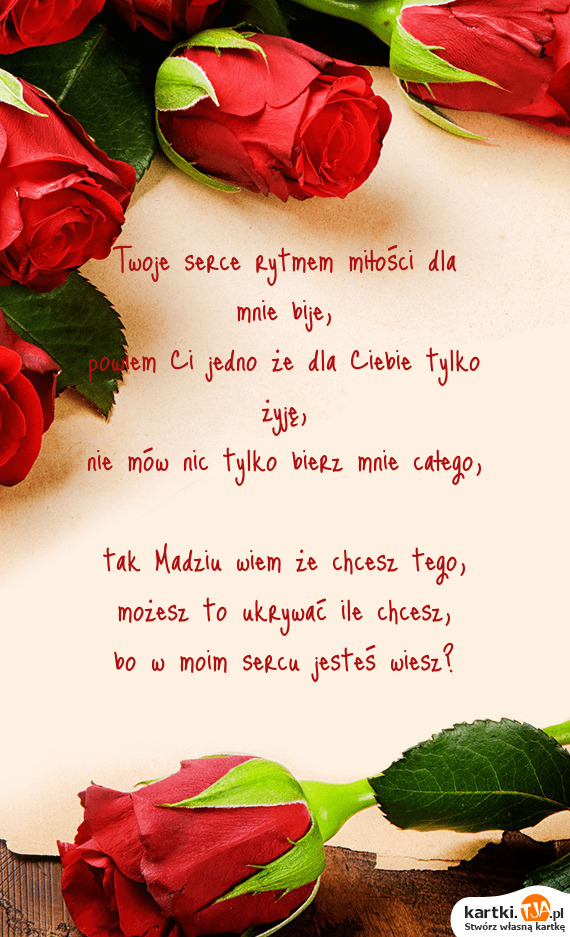 Twoje serce rytmem miłości dla
mnie bije,
powiem Ci jedno że dla Ciebie tylko
żyję,
nie mów nic tylko bierz mnie całego,
tak Madziu wiem że chcesz tego,
możesz to ukrywać ile chcesz,
bo w moim sercu jesteś wiesz?
kartki.TJA.pl
Stwórz własną kartkę